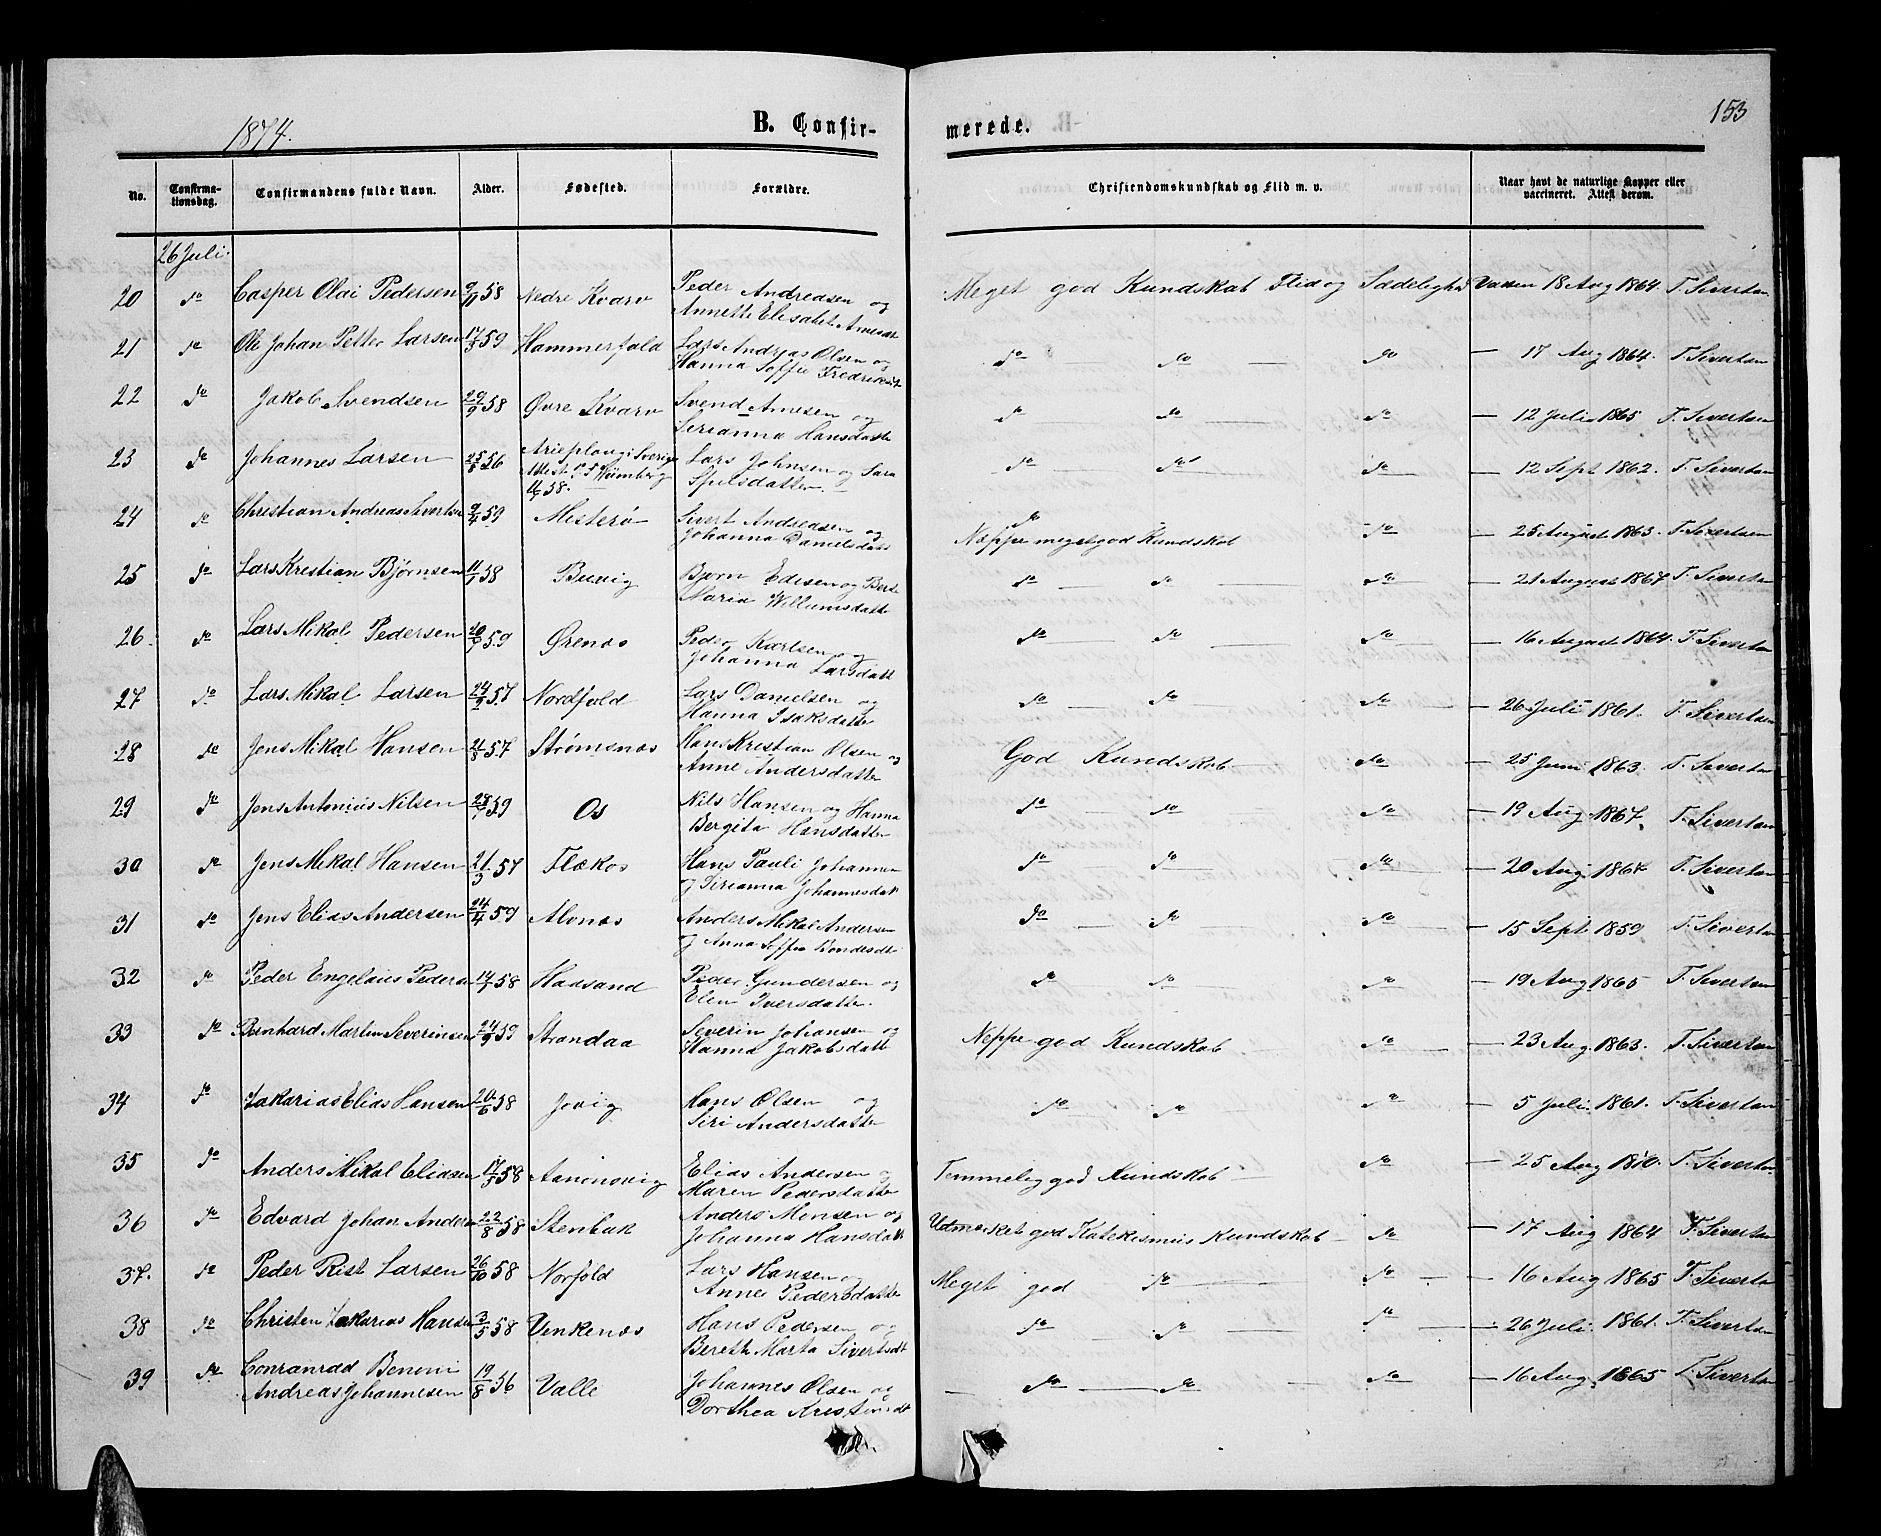 1874.
B. Confir-
merede.
153
No. Confirma-tionsdag. Confirmandens fulde Navn. Alder. Fødested. Forældre. Christendomskundskab og Flid m. v. Naar havt de naturlige Kopper eller vaccineret. Attest derom.
26 Juli.
20 do Casper Olai Pedersen 58 Nedre Kvarv Peder Andreasen og Meget god Kundskab Flid og Sædelighed Vaccen 18 Aug 1864 T. Sivertsen
Annette Elisabet
21 do Ole Johan Petter Larsen 17/3 59 Hammerfald Lars Andreas Olsen og do do do 17 Aug 1864. T. Sivertsen
Hanna Soffie
22 do Jakob Svendsen 29/9 58 Øvre Kvarv Svend Arnesen og do do do 12 Juli 1865 T. Sivertsen
Serianna Hansdatter
23 do Johannes Larsen 25/8 56 Arieplaug i Sverige Lars Johnsen og Sara do do do 12 Sept 1862. T. Sivertsen
Attest
58.
24 do Christian Andreas Sivertsen 9/4 59 Misterø Sivert Andreasen og do
Johanna Danielsdatter Neppe meget god Kundskab do 25 August 1863. T. Sivertsen
25 do Lars Kristian Bjørnsen 11/1 58 Buvig Bjørn Edisen og Berte do do do 21 August 1867 T. Sivertsen
Maria Willumsdatter
26 do Lars Mikal Pedersen 20/9 59 Ørenes Peder Karlsen og do do do 16 August 1864. T. Sivertsen
Johanna Larsdatter
27 do Lars Mikal Larsen 24/9 57 Nordfold Lars Danielsen og do do do 26 Juli 1861. T. Sivertsen
Hanna Isaksdatter
28 do Jens Mikal Hansen 57 Strømsnæs Hans Kristian Olsen og God Kundskab do 25 Juni 1863. T. Sivertsen
Anne Andersdatter
29 do Jens Antonius Nilsen 59 Os Nils Hansen og Hanna do do do 19 Aug 1867. T. Sivertsen
Bergita Hansdatter
30 do Jens Mikal Hansen 21/3 57 Flækos Hans Pauli Johannesen do do do 20 Aug 1867 T. Sivertsen
og Sirianna Johannesdatt
31 do Jens Elias Andersen 24/4 59 Alvnæs Anders Mikal Andersen do do do 15 Sept 1859 T. Sivertsen
og Anna Soffia
32 do Peder Engelaus Pedersen 14/7 58 Haasand Peder Gundersen og do do do 19 Aug 1865 T. Sivertsen
Elen Iversdatter.
33 do Bernhard Martin Severinsen 24/9 59 Strandaa Severin Johansen og Neppe god Kundskab do 23 Aug 1863. T. Sivertsen
Hanna Jakobsdatter
34 do Zakarias Elias Hansen 20/6 58 Jovig Hans Olsen og do do do 5 Juli 1861. T. Sivertsen
Siri Andersdatter
35 do Anders Mikal Eliasen 58 Aanonsvig Elias Andersen og Temmelig god Kundskab do 25 Aug 1870. T. Sivertsen
Maren Pedersdatter
36 do Edvard Johan Andersen 22/8 58 Stenbak Anders Monsen og Udmærket god Katekismus Kundskab do 17 Aug 1864 T. Sivertsen
Johanna Hansdatt
37. do Peder Rist Larsen 26/10 58 Norføld Lars Hansen og Meget god do do 16 Aug 1865 T. Sivertsen
Anne Pedersdatter
38 do Christen Zakarias Hansen 3/5 58 Venkenæs Hans Pedersen og do do do 26 Juli 1861. T. Sivertsen
Bereth Marta Sivertsdt
39 do Conranrad Benoni 19/8 56 Valle Johannes Olsen og do do do 16 Aug 1865 T. Sivertsen
Andreas Johannesen Dorthea